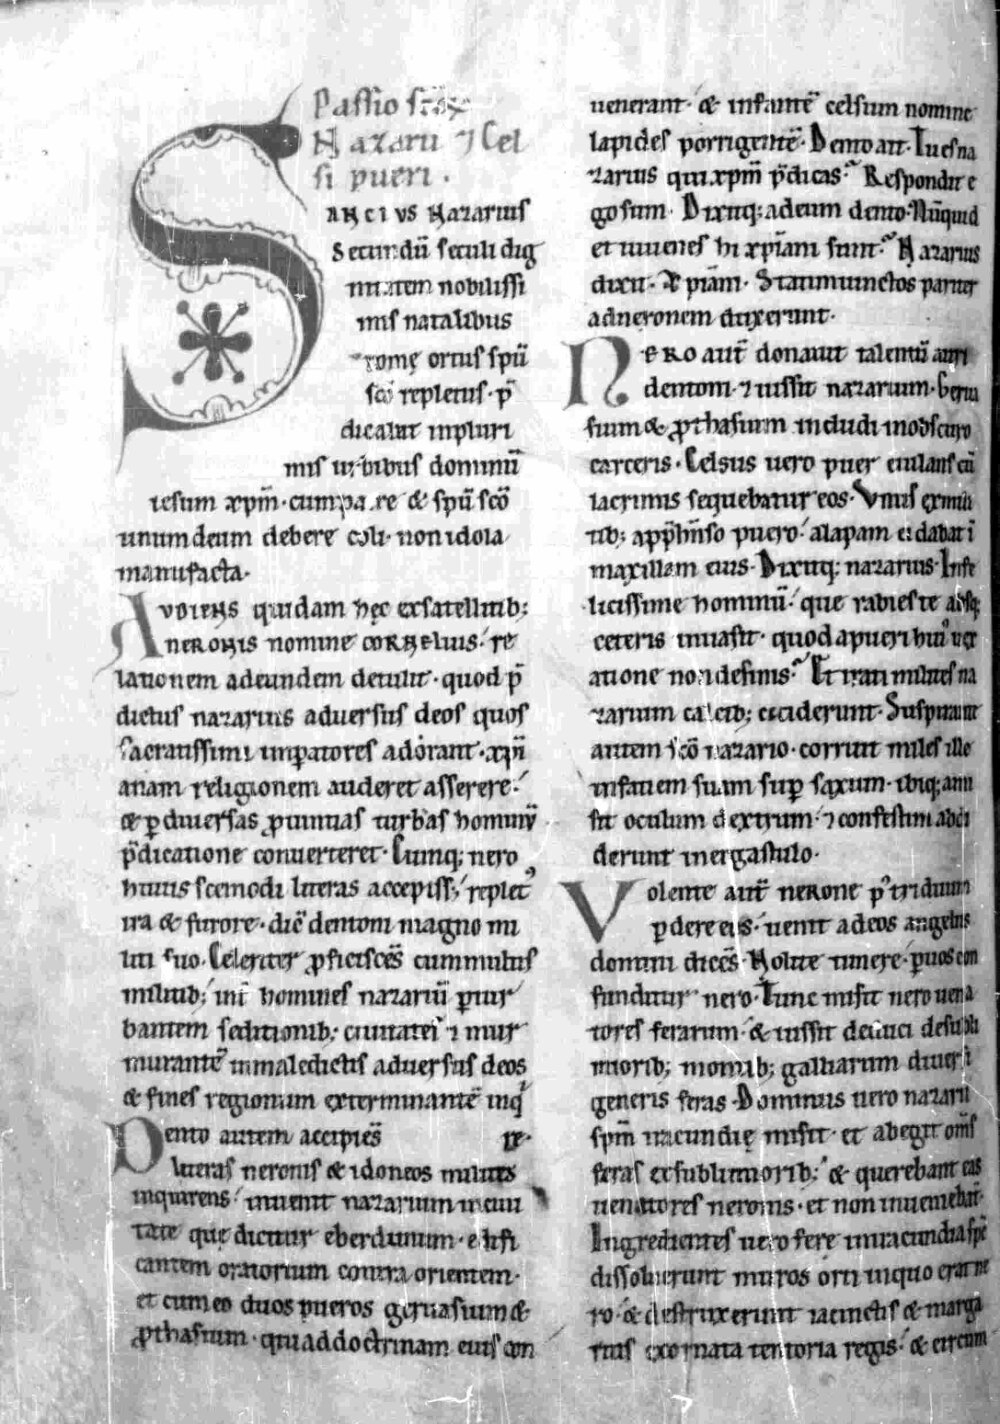 Passio sc̄ōꝝ
Nazarii ⁊ Cel
si pueri.
SANCIVS Nazarius
Secundū seculi dig
nitatem nobilissi
mis natalibus
romę ortus spū
sc̄o repletus. p̄
dicabat inpluri
mis urbibus dominū
iesum xp̄m. cum patre & spū sc̄o
unum deum debere coli. non idola
manufacta.
AVDIENS quidam hęc exsatellitib;
NERONIS nomine CORNELIUS. re
lationem adeundem detulit. quod p̄
dictus nazarius adversus deos quos
sacratissimi imꝑatores adorant. xp̄i
anam religionem auderet asserere.
& ꝑ diversas ꝓvintias turbas hominū
p̄dicatione converteret. Cumq; nero
huiuscemodi literas accepiss&, replet᷒
ira & furore. dic̄ dentoni magno mi
liti suo. Celeriter ꝓficiscēs cummultis
militib; int̄ homines nazariū ꝑtur
bantem seditionib; civitatē ⁊ mur
murantē inmaledictis adversus deos
& fines regionum exterminantē inq̓
Dento autem accipiēs re.
literas neronis & idoneos milites
inquirens. invenit nazarium incivi
tate quę dicitur eberdunum. edifi
cantem oratorium contra orientem.
et cum eo duos pueros gervasium &
ꝓthasium. qui addoctrinam eius con
venerant. & infantē celsum nomine
lapides porrigentē. Dento ait. Tu es na
zarius qui xp̄m p̄dicas? Respondit e
go sum. Dixitq; adeum dento. Nūquid
et iuvenes hi xp̄iani sunt? Nazarius
dixit. Xp̄iani. Statim vinctos pariter
adneronem duxerunt.
NERO aut̄ donavit talentū auri
dentoni. ⁊ iussit nazarium. Gerva
sium & ꝓthasium includi inobscuro
carceris. Celsus vero puer eiulans cū
lacrimis sequebatur eos. Vnus ex mili
tib; app̄henso puero. alapam ei dabat ī
maxillam eius. Dixitq; nazarius. Infe
licissime hominū. que rabies te absq;
ceteris invasit. quod a pueri hui᷒ vex
atione non desinis? Et irati milites na
zarium calcib; ceciderunt. Suspirante
autem sc̄o nazario. corruit miles ille
infaciem suam suꝑ saxum. ibiq; ami
sit oculum dextrum. ⁊ confestim abdi
derunt inergastulo.
Volente aut̄ nerone p᷒ triduum
ꝑdere eos. venit adeos angelus
domini dicēs. Nolite timere. ꝑ vos con
fundetur nero. Tunc misit nero vena
tores ferarum. & iussit deduci desubli
miorib; montib; galliarum diversi
generis feras. Dominus vero nazarii
spm̄ iracundię misit. et abegit om̄s
feras exsublimiorib; & querebant eas
venatores neronis. et non inveniebāt.
Ingredientes vero fere iniracundia spc̄
dissolverunt muros orti inquo erat ne
ro. & destruxerunt iacinctis & marga
ritis exornata tentoria regis. & circum